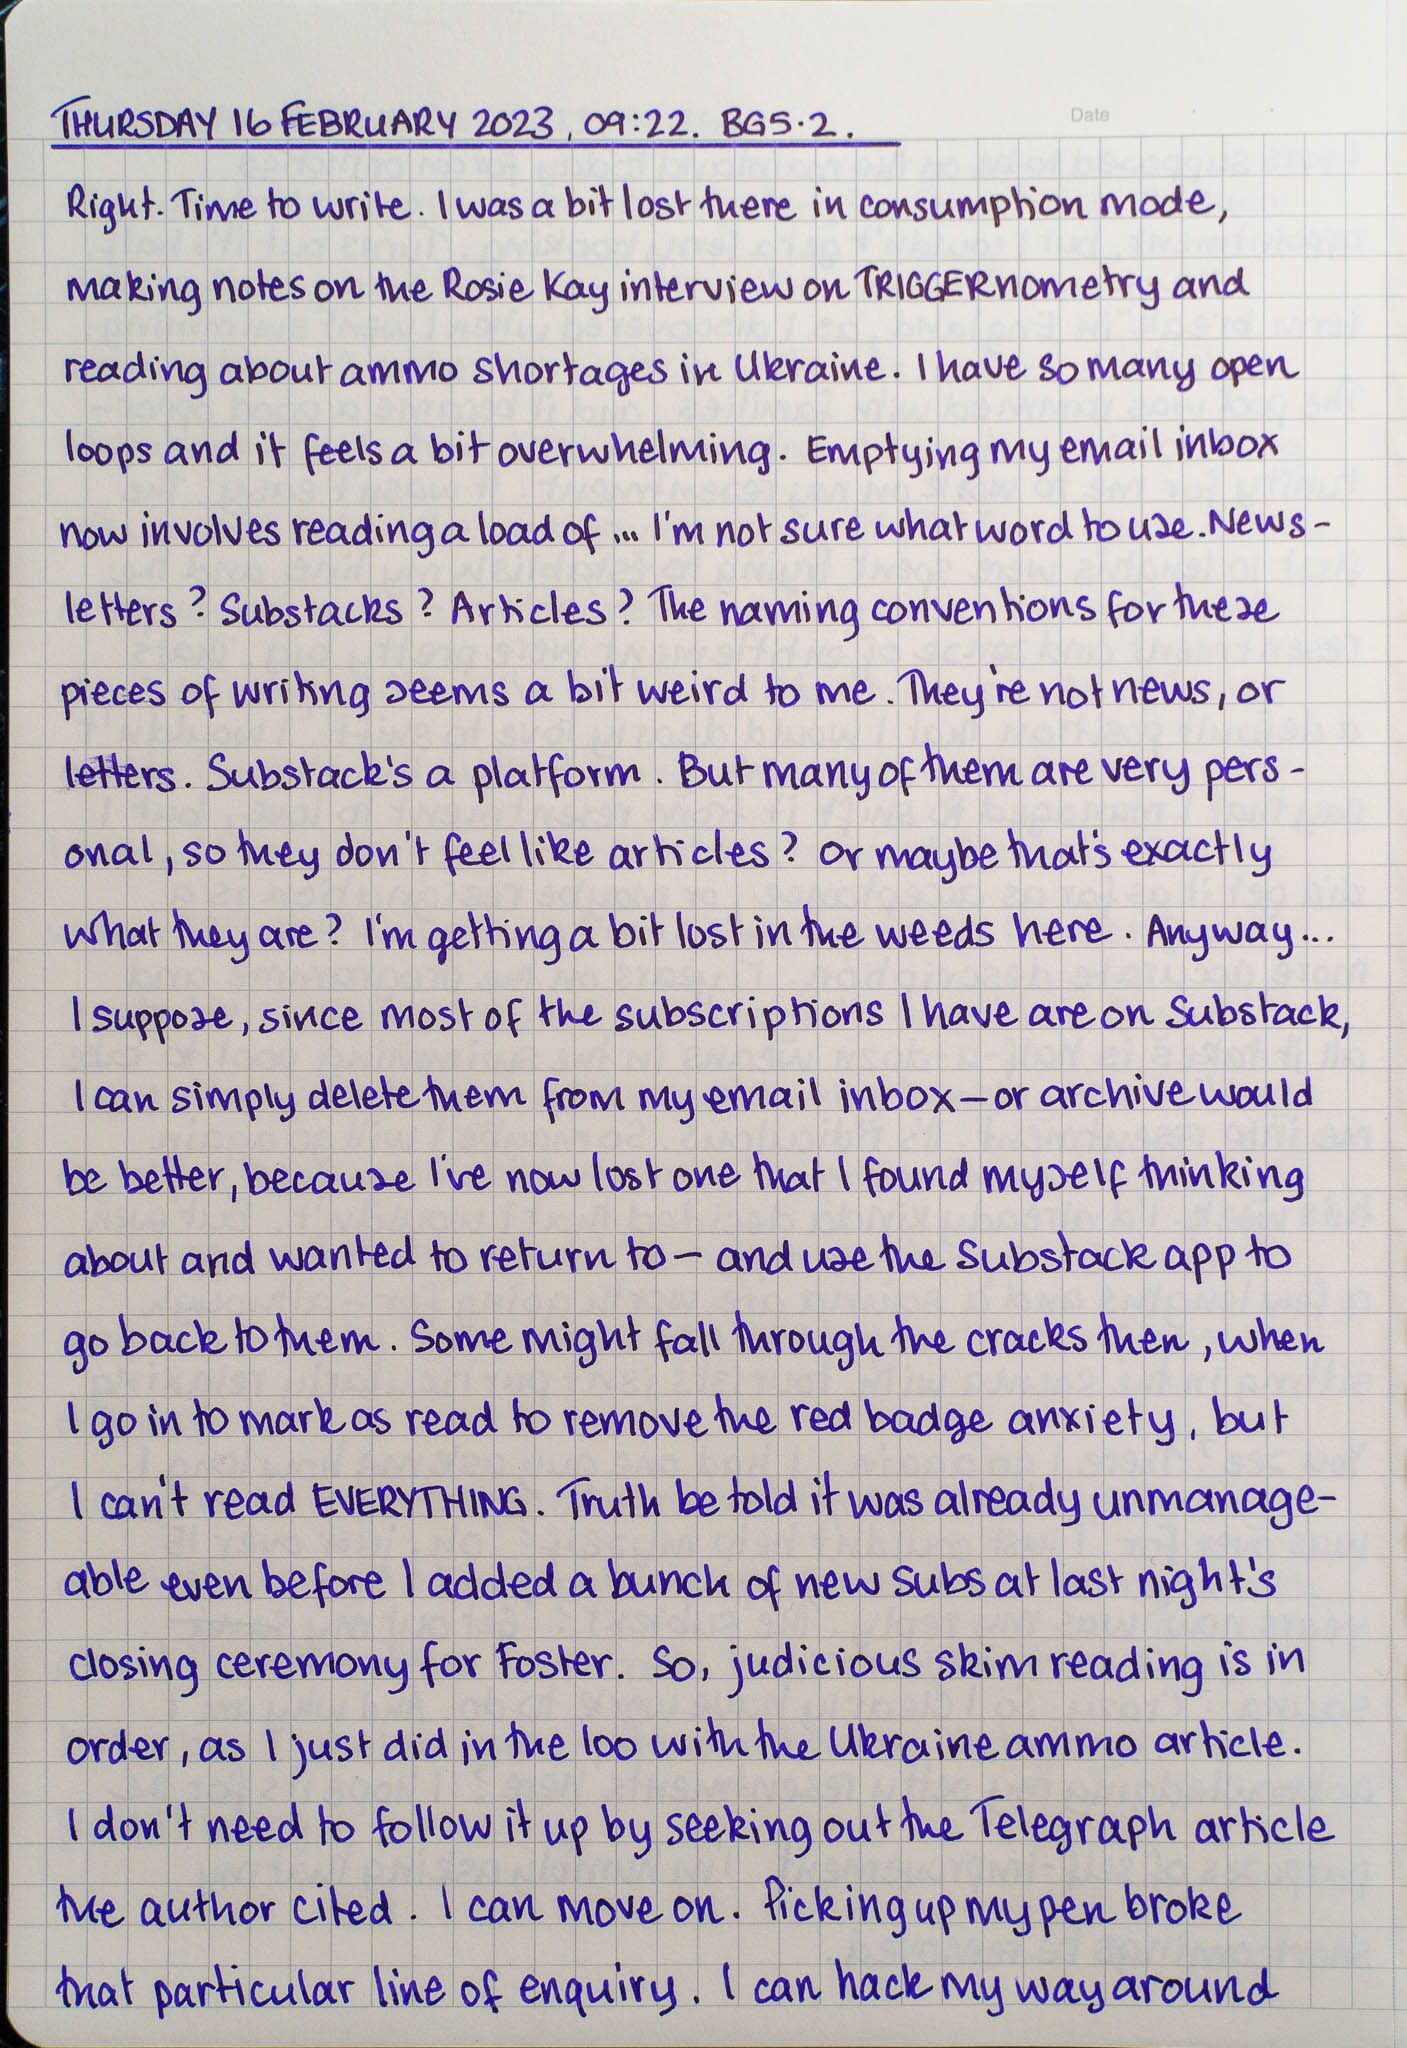 Date
THURSDAY 16 FEBRUARY 2023, 09:22. BG5.2.
Right. Time to write. I was a bit lost there in consumption mode,
making notes on the Rosie Kay interview on TRIGGERnometry and
reading about ammo shortages in Ukraine. I have so many open
loops and it feels a bit overwhelming. Emptying my email inbox
now involves reading a load of ... I'm not sure what word to use. News-
letters? Substacks? Articles? The naming conventions for these
pieces of writing seems a bit weird to me. They're not news, or
letters. Substack's a platform. But many of them are very pers-
onal, so they don't feel like articles? Or maybe that's exactly
what they are? I'm getting a bit lost in the weeds here. Anyway...
I suppose, since most of the subscriptions I have are on Substack,
I can simply delete them from my email inbox – or archive would
be better, because I've now lost one that I found myself thinking
about and wanted to return to – and use the Substack app to
go back to them. Some might fall through the cracks then, when
I go in to mark as read to remove the red badge anxiety, but
I can't read EVERYTHING. Truth be told it was already unmanage-
able even before I added a bunch of new subs at last night's
closing ceremony for Foster. So, judicious skim reading is in
order, as I just did in the loo with the Ukraine ammo article.
I don't need to follow it up by seeking out the Telegraph article
the author cited. I can move on. Picking up my pen broke
that particular line of enquiry. I can hack my way around